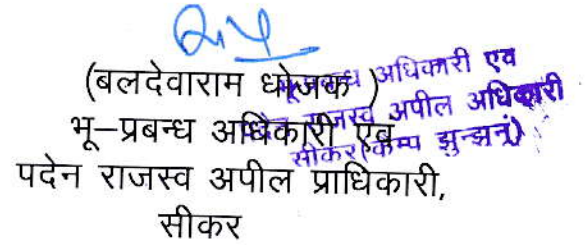 (बलदेवाराम धोजक)
भू-प्रबन्ध अधिकारी एवं
पदेन राजस्व अपील प्राधिकारी,
सीकर
भू-प्रबन्ध अधिकारी एव
पदेन राजस्व अपील अधिकारी
सीकर(कैम्प झुन्झनूं)